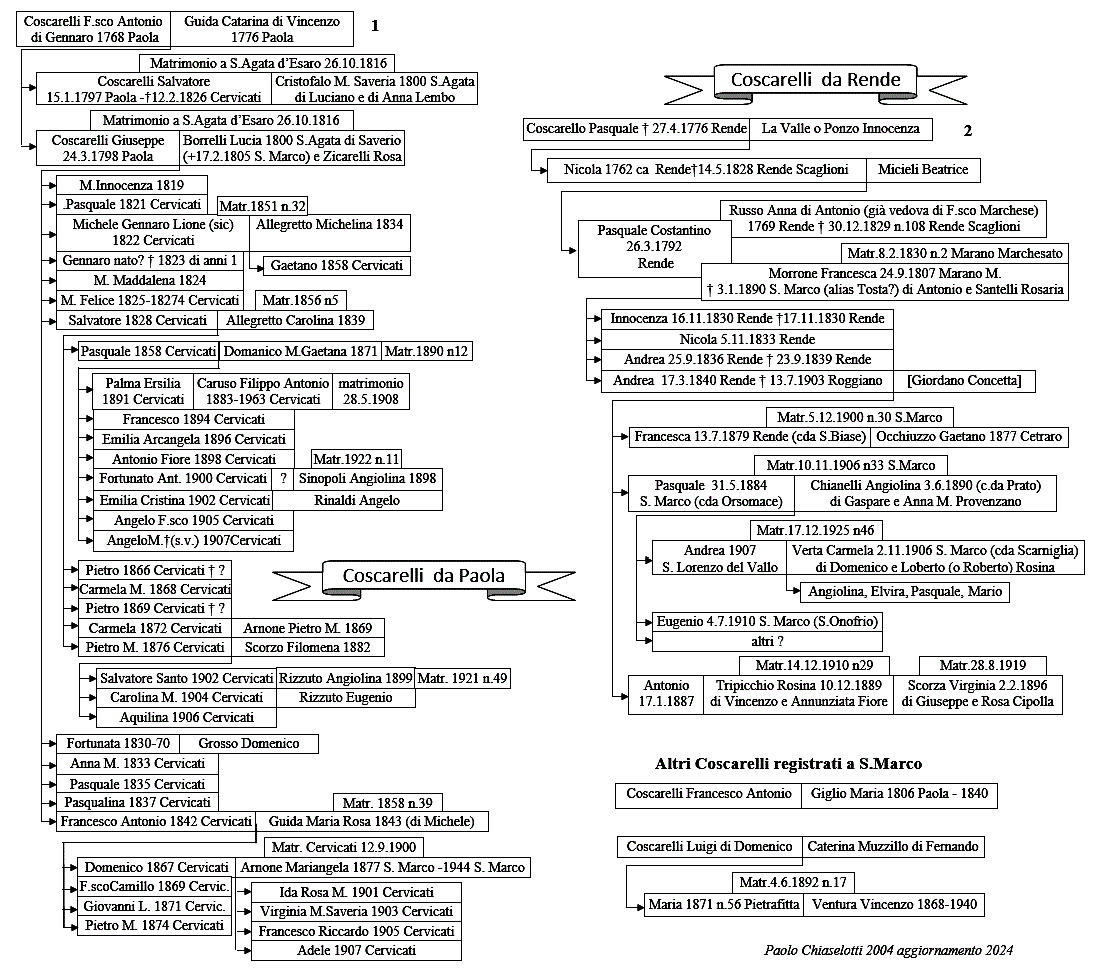 Coscarelli F.sco Antonio
di Gennaro 1768 Paola
Guida Catarina di Vincenzo
1776 Paola
1
Matrimonio a S.Agata d'Esaro 26.10.1816
Coscarelli Salvatore
15.1.1797 Paola -†12.2.1826 Cervicati
Cristofalo M. Saveria 1800 S.Agata
di Luciano e di Anna Lembo
Matrimonio a S.Agata d'Esaro 26.10.1816
Coscarelli Giuseppe
24.3.1798 Paola
Borrelli Lucia 1800 S.Agata di Saverio
(+17.2.1805 S. Marco) e Zicarelli Rosa
M.Innocenza 1819
.Pasquale 1821 Cervicati
Matr.1851 n.32
Michele Gennaro Lione (sic)
1822 Cervicati
Allegretto Michelina 1834
Gennaro nato? † 1823 di anni 1
Gaetano 1858 Cervicati
M. Maddalena 1824
M. Felice 1825-18274 Cervicati
Matr.1856 n5
Salvatore 1828 Cervicati
Allegretto Carolina 1839
Pasquale 1858 Cervicati
Domanico M.Gaetana 1871
Matr.1890 n12
Palma Ersilia
1891 Cervicati
Caruso Filippo Antonio
1883-1963 Cervicati
matrimonio
28.5.1908
Francesco 1894 Cervicati
Emilia Arcangela 1896 Cervicati
Antonio Fiore 1898 Cervicati
Matr.1922 n.11
Fortunato Ant. 1900 Cervicati
?
Sinopoli Angiolina 1898
Emilia Cristina 1902 Cervicati
Rinaldi Angelo
Angelo F.sco 1905 Cervicati
AngeloM.†(s.v.) 1907Cervicati
Coscarelli da Paola
Pietro 1866 Cervicati † ?
Carmela M. 1868 Cervicati
Pietro 1869 Cervicati † ?
Carmela 1872 Cervicati
Arnone Pietro M. 1869
Pietro M. 1876 Cervicati
Scorzo Filomena 1882
Salvatore Santo 1902 Cervicati
Rizzuto Angiolina 1899
Matr. 1921 n.49
Carolina M. 1904 Cervicati
Rizzuto Eugenio
Aquilina 1906 Cervicati
Fortunata 1830-70
Grosso Domenico
Anna M. 1833 Cervicati
Pasquale 1835 Cervicati
Pasqualina 1837 Cervicati
Matr. 1858 n.39
Francesco Antonio 1842 Cervicati
Guida Maria Rosa 1843 (di Michele)
Matr. Cervicati 12.9.1900
Domenico 1867 Cervicati
Arnone Mariangela 1877 S. Marco -1944 S. Marco
F.scoCamillo 1869 Cervic.
Giovanni L. 1871 Cervic.
Pietro M. 1874 Cervicati
Ida Rosa M. 1901 Cervicati
Virginia M.Saveria 1903 Cervicati
Francesco Riccardo 1905 Cervicati
Adele 1907 Cervicati
Coscarelli da Rende
Coscarello Pasquale † 27.4.1776 Rende
La Valle o Ponzo Innocenza
2
Nicola 1762 ca Rende†14.5.1828 Rende Scaglioni
Micieli Beatrice
Russo Anna di Antonio (già vedova di F.sco Marchese)
1769 Rende † 30.12.1829 n.108 Rende Scaglioni
Pasquale Costantino
26.3.1792
Rende
Matr.8.2.1830 n.2 Marano Marchesato
Morrone Francesca 24.9.1807 Marano M.
† 3.1.1890 S. Marco (alias Tosta?) di Antonio e Santelli Rosaria
Innocenza 16.11.1830 Rende †17.11.1830 Rende
Nicola 5.11.1833 Rende
Andrea 25.9.1836 Rende † 23.9.1839 Rende
Andrea 17.3.1840 Rende † 13.7.1903 Roggiano
[Giordano Concetta]
Matr.5.12.1900 n.30 S.Marco
Francesca 13.7.1879 Rende (cda S.Biase)
Occhiuzzo Gaetano 1877 Cetraro
Matr.10.11.1906 n33 S.Marco
Pasquale 31.5.1884
S. Marco (cda Orsomace)
Chianelli Angiolina 3.6.1890 (c.da Prato)
di Gaspare e Anna M. Provenzano
Matr.17.12.1925 n46
Andrea 1907
S. Lorenzo del Vallo
Verta Carmela 2.11.1906 S. Marco (cda Scarniglia)
di Domenico e Loberto (o Roberto) Rosina
Angiolina, Elvira, Pasquale, Mario
Eugenio 4.7.1910 S. Marco (S.Onofrio)
altri ?
Matr.14.12.1910 n29
Matr.28.8.1919
Antonio
17.1.1887
Tripicchio Rosina 10.12.1889
di Vincenzo e Annunziata Fiore
Scorza Virginia 2.2.1896
di Giuseppe e Rosa Cipolla
Altri Coscarelli registrati a S.Marco
Coscarelli Francesco Antonio
Giglio Maria 1806 Paola - 1840
Coscarelli Luigi di Domenico
Caterina Muzzillo di Fernando
Matr.4.6.1892 n.17
Maria 1871 n.56 Pietrafitta
Ventura Vincenzo 1868-1940
Paolo Chiaselotti 2004 aggiornamento 2024